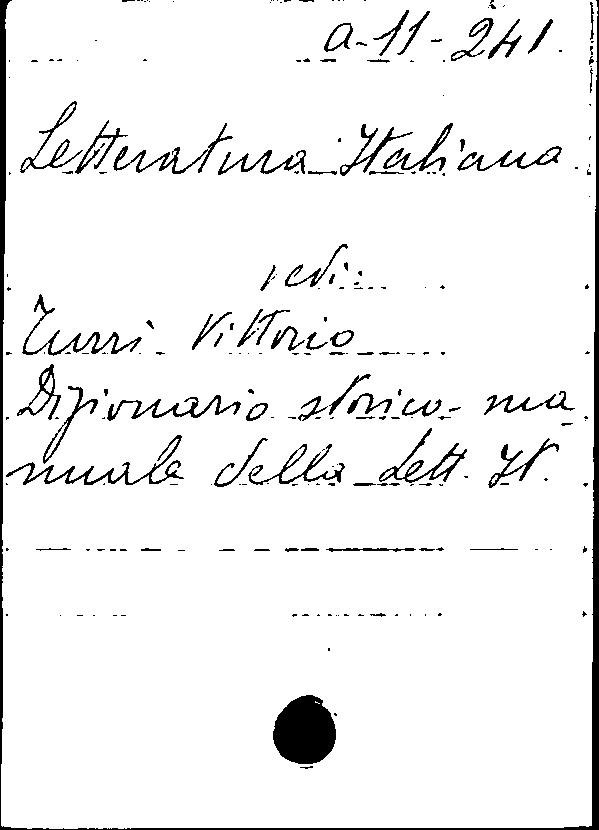 a-11-241
Letteratura Italiana
vedi:
Turri Vittorio
Dizionario storico-ma
nuale della Lett. It.